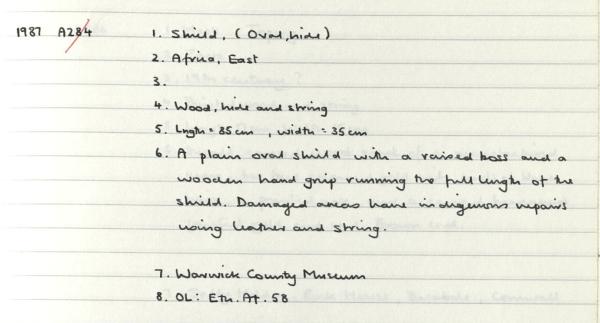 1987 A284 1. Shield, (Oval, hide)
2. Africa, East
3.
4. Wood, hide and string
5. Lngth = 85cm , width = 35cm
6. A plain oval shield with a raised boss and a
wooden hand grip running the full length of the
shield. Damaged areas have indigenous repairs
using leather and string.
7. Warwick County Museum
8. OL: Eth. Af. 58